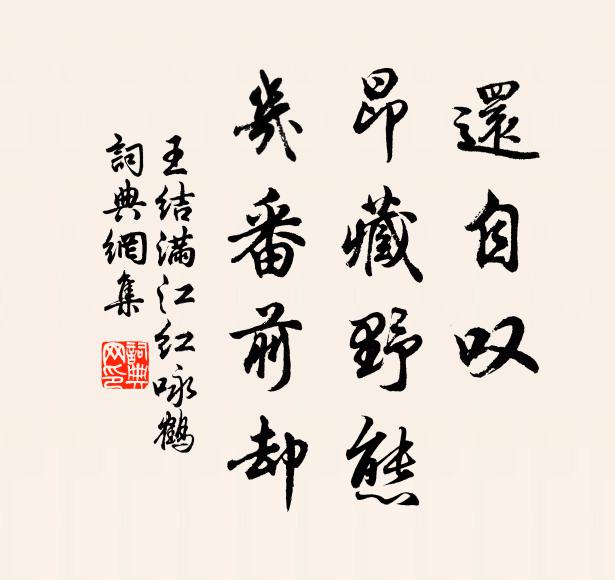 還自叹
昂藏野態
幾番前却
王结满江红咏鶴
詞典網集
詞典网印